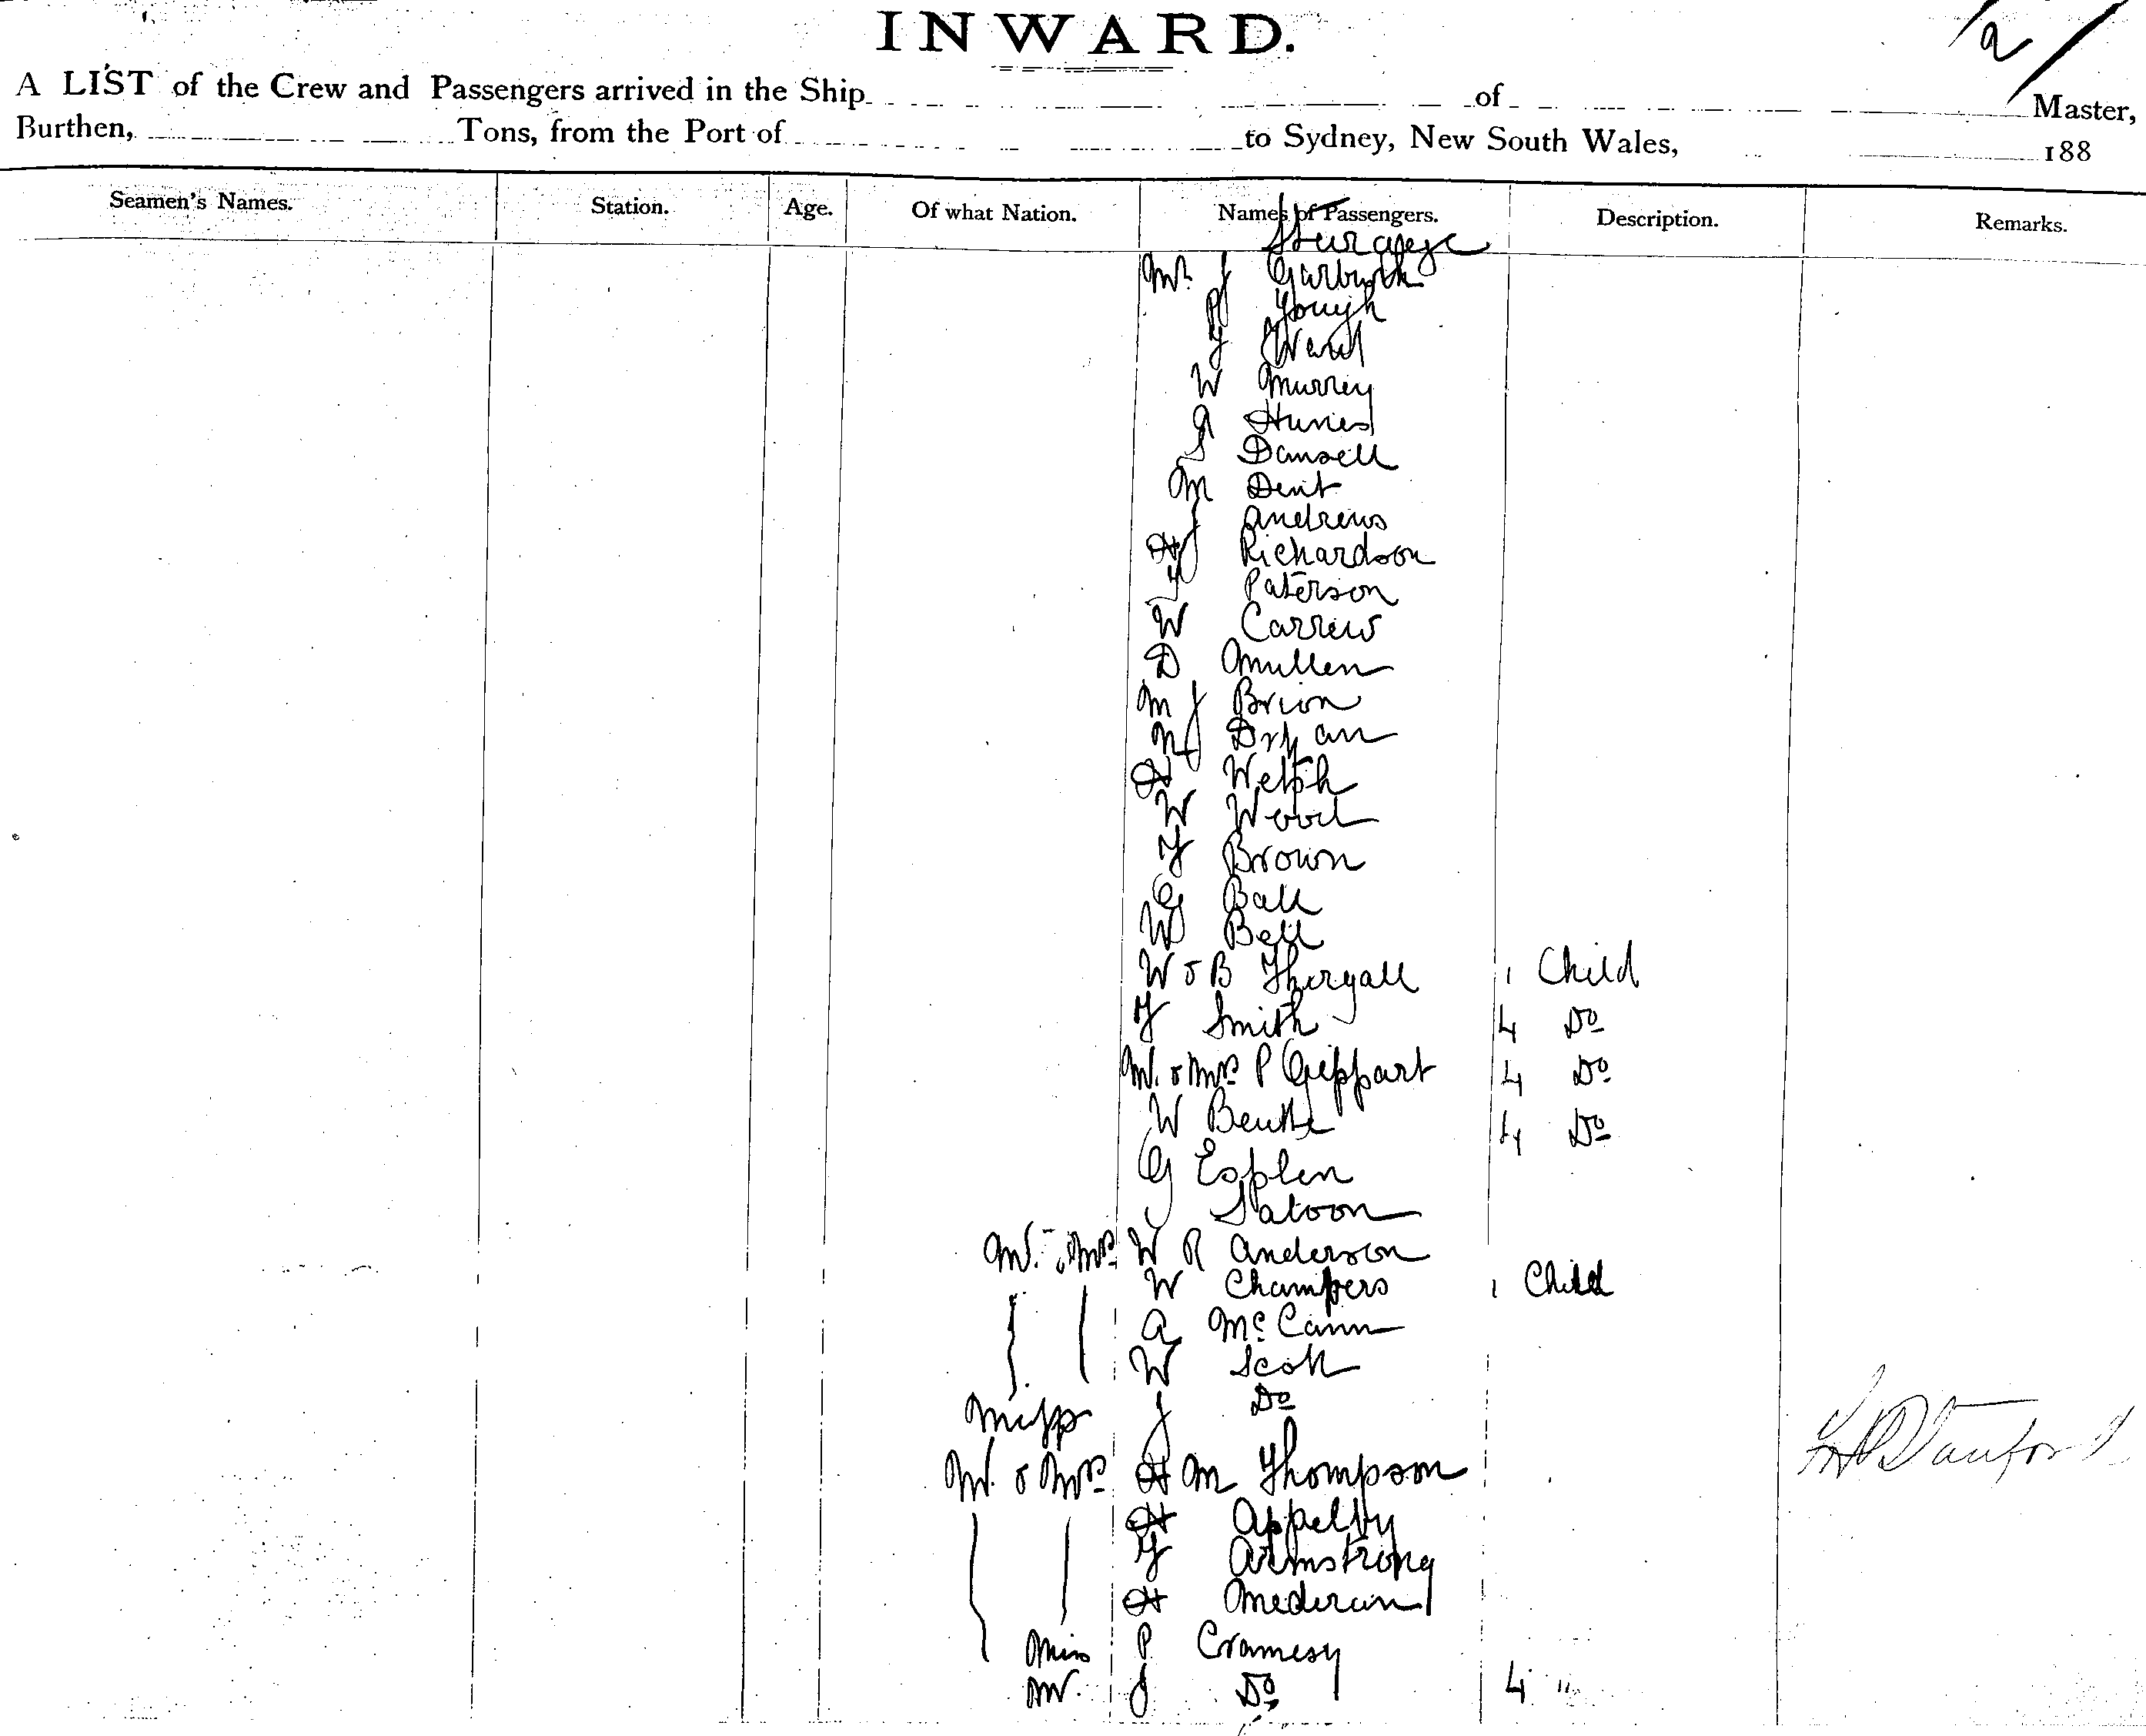 INWARD.
2/
A LIST of the Crew and Passengers arrived in the Ship of Master,
Burthen, Tons, from the Port of to Sydney, New South Wales, 188
Seamen's Names. Station. Age. Of what Nation. Names of Passengers. Description. Remarks.
Steerage
Mr. J
P Gough
J Ward
W Murrey
A
S Dansell
M Dent
J Andrews
H J Richardson
J Paterson
W Carrew
D Mullen
M J Brion
M J Dryan
H Welsh
W Wood
F Brown
G Ball
W Bell
W & B 1 Child
F Smith 4 Do
Mr. & Mrs P Geppart 4 Do
W 4 Do
G Esplen
Saloon
Mr. & Mrs W R Anderson
W Chambers 1 Child
A McCann
W Scott
Miss J Do
Mr. & Mrs H M Thompson
H Appelby
F Armstrong
H
Miss P Cramesy
Mr. J Do 4 "